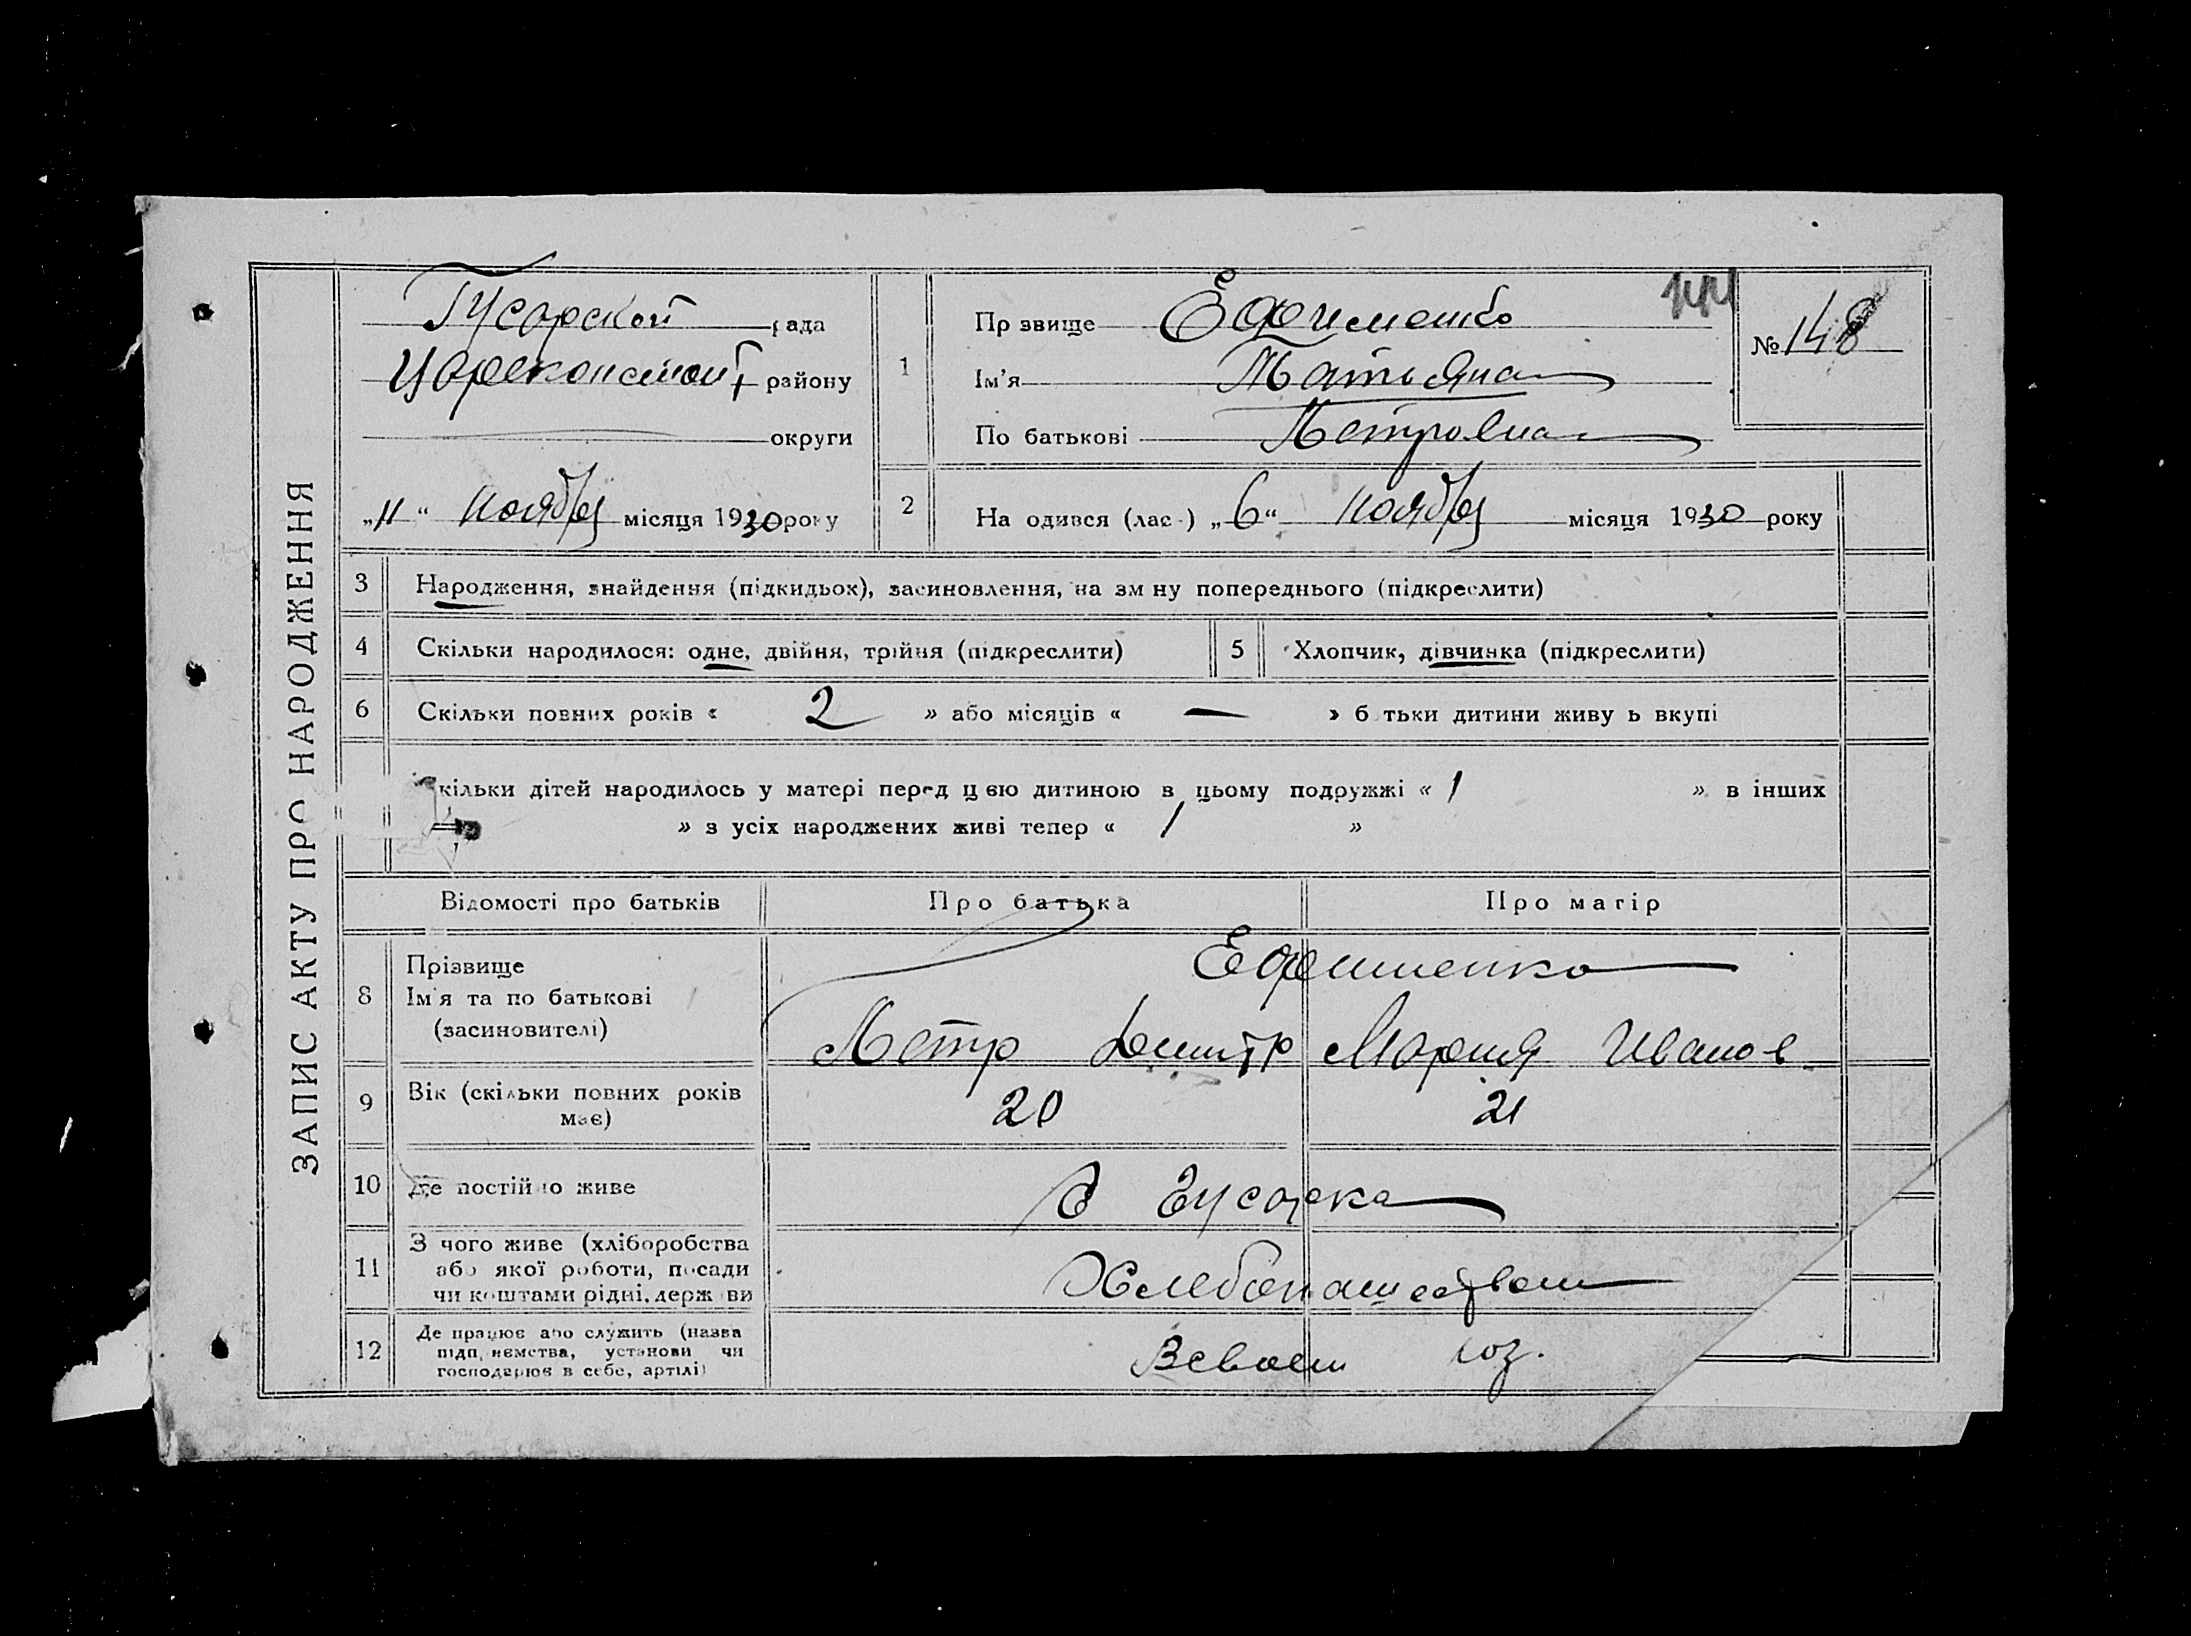 ЗАПИС АКТУ ПРО НАРОДЖЕННЯ
Гусарской рада
Цареконстант району
округи
„11“ ноября місяця 1930 року
1
Пр звище Ефименко
Ім’я Татьяна
По батькові Петровна
№ 148
2
На одився (лас ) „6“ ноября місяця 1930 року
3 Народження, знайдення (підкидьох), засиновлення, на зм ну попереднього (підкреслити)
4 Скільки народилося: одне, двійня, трійня (підкреслити) 5 Хлопчик, дівчинка (підкреслити)
6 Скільки повних років « 2 » або місяців « — » б тьки дитини живу ь вкупі
кільки дітей народилось у матері перед ц єю дитиною в цьому подружжі « 1 » в інших
» з усіх народжених живі тепер « 1 »
Відомості про батьків Про батька Про матір
8 Прізвище Ефименко
Ім’я та по батькові
(засиновителі) Петр Дмитр Мария Иванов
9 Вік (скільки повних років
має) 20 21
10 Де постійно живе с Гусарка
11 З чого живе (хліборобства
або якої роботи, посади
чи коштами рідні, держ ви Хлебопашеством
12 Де працює або служить (назва
підп иємства, установи чи
господарює в себе, артілі) В своем хоз.